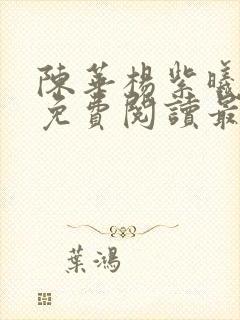 陳華楊紫曦
免費閱讀最
葉鴻